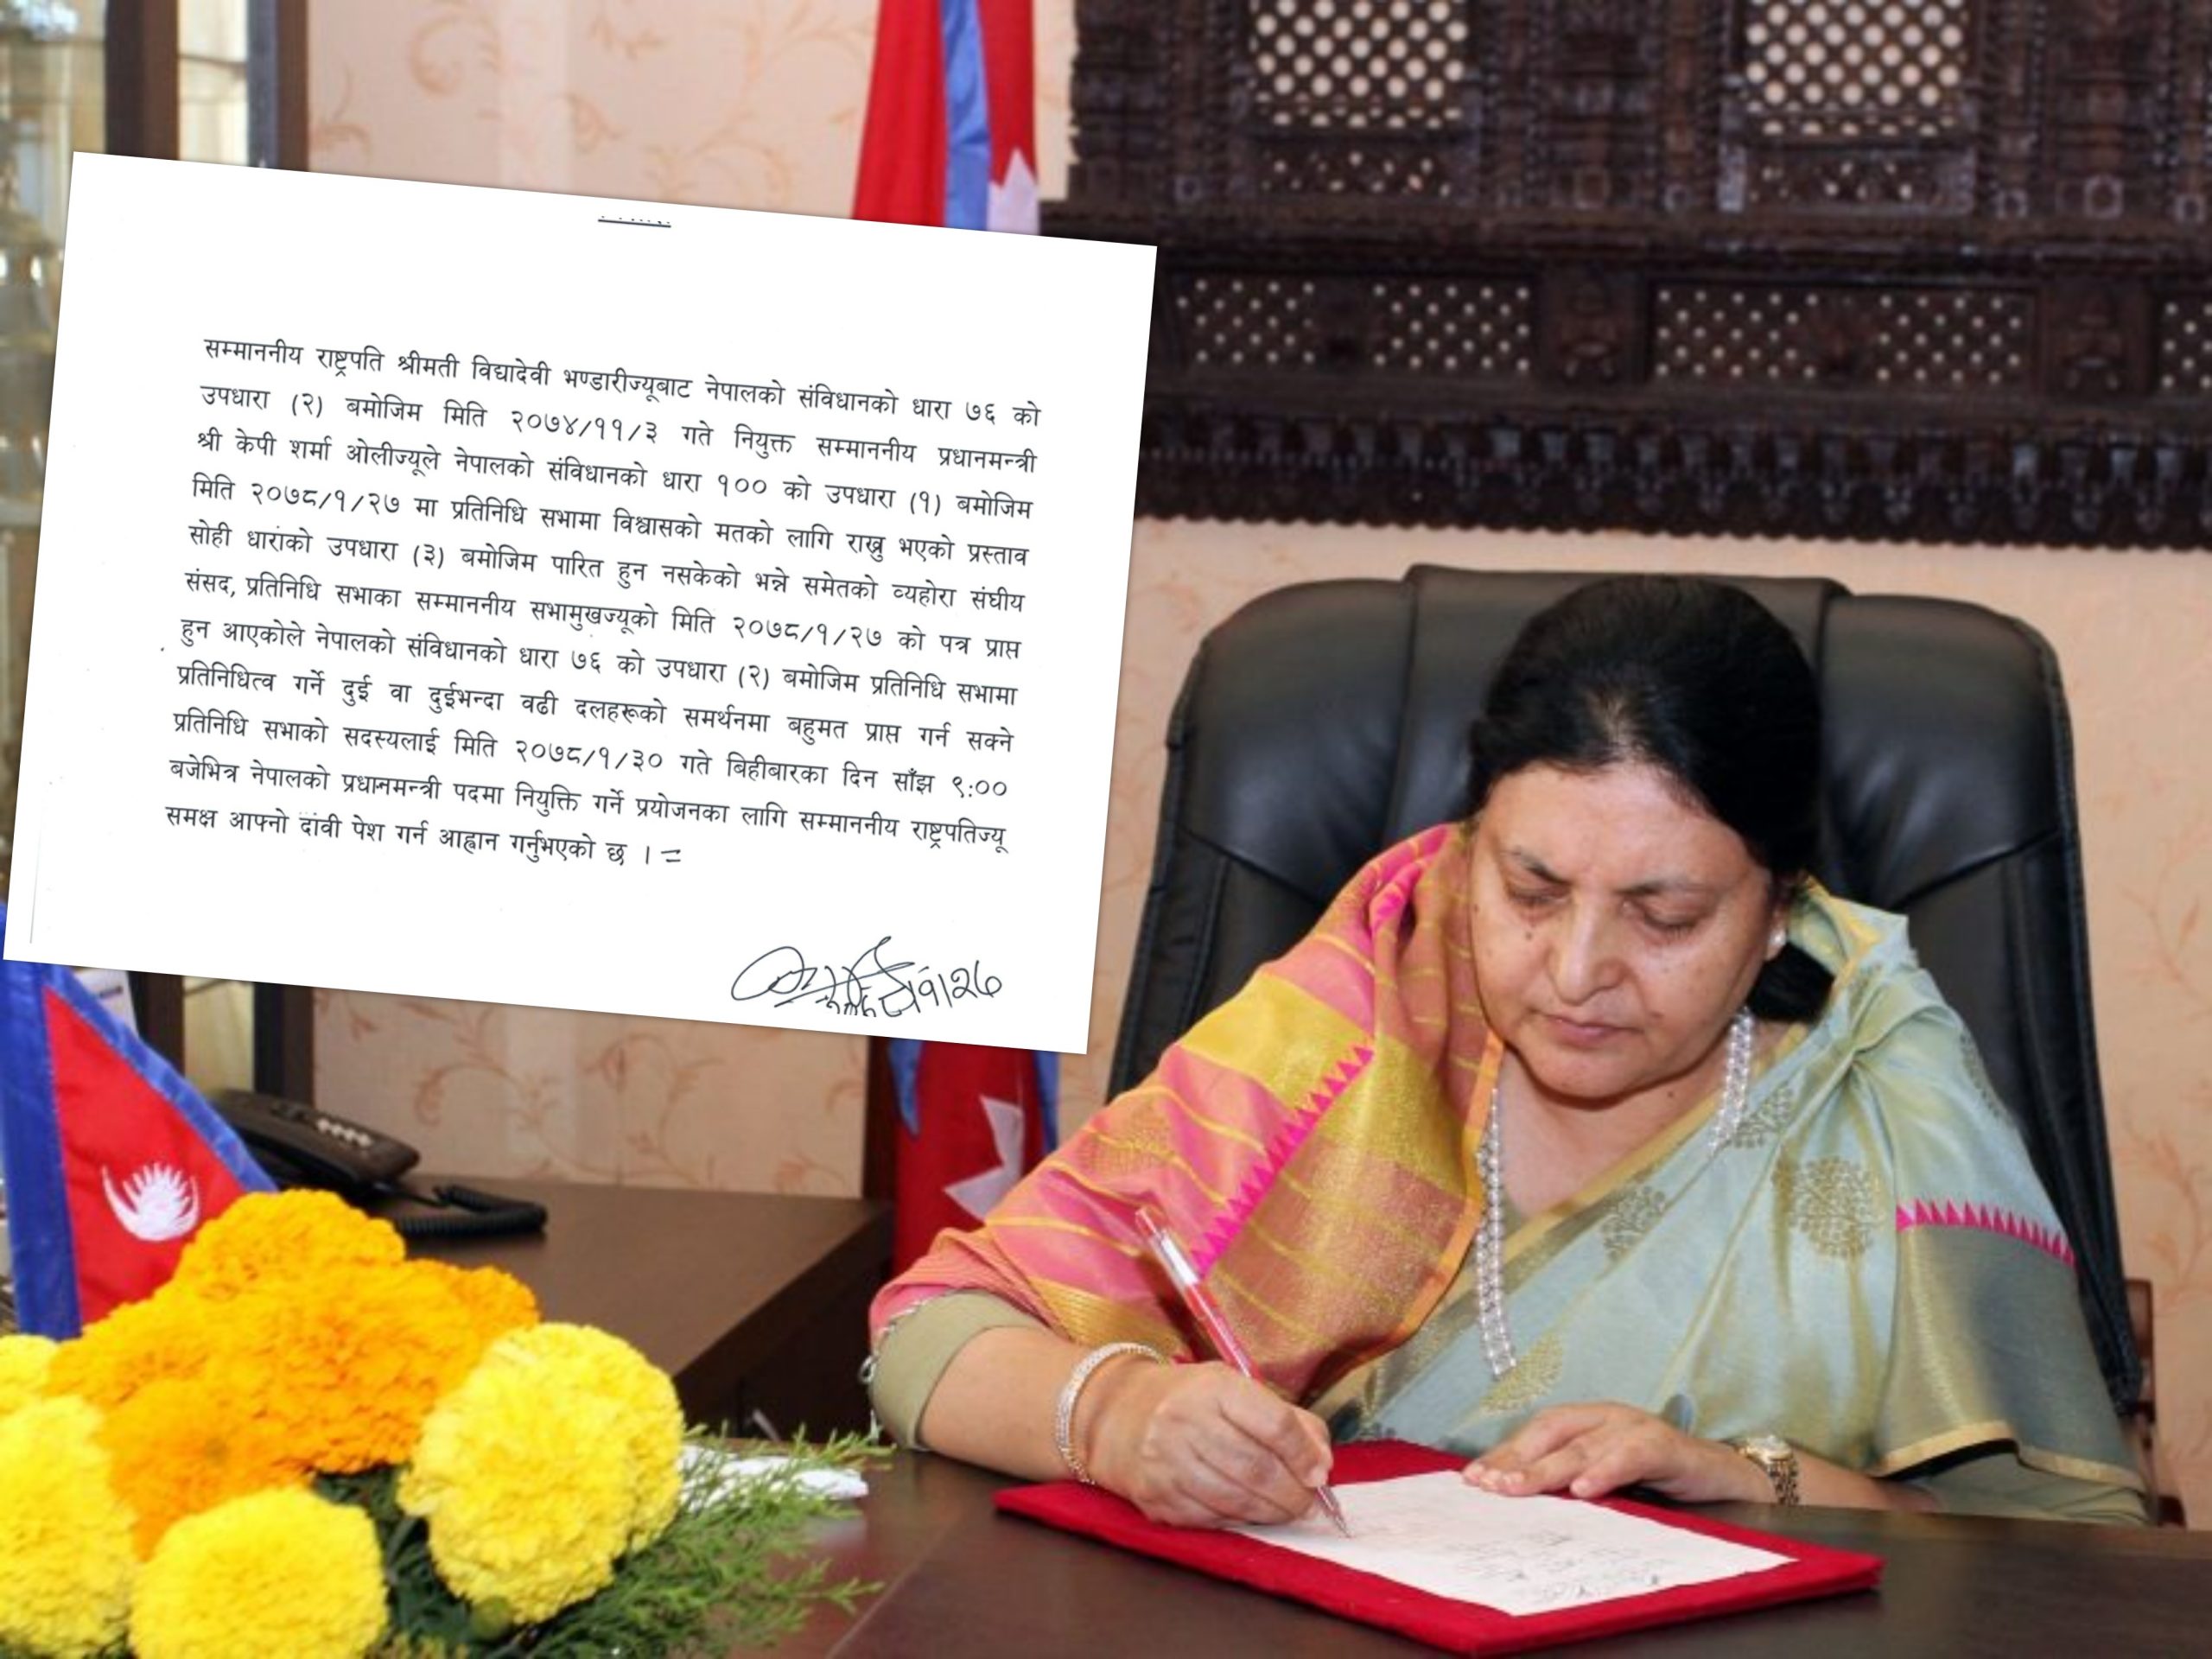 सम्माननीय राष्ट्रपति श्रीमती विद्यादेवी भण्डारीज्यूबाट नेपालको संविधानको धारा ७६ को
उपधारा (२) बमोजिम मिति २०७४/११/३ गते नियुक्त सम्माननीय प्रधानमन्त्री
श्री केपी शर्मा ओलीज्यूले नेपालको संविधानको धारा १०० को उपधारा (१) बमोजिम
मिति २०७८/१/२७ मा प्रतिनिधि सभामा विश्वासको मतको लागि राख्नु भएको प्रस्ताव
सोही धाराको उपधारा (३) बमोजिम पारित हुन नसकेको भन्ने समेतको व्यहोरा संघीय
संसद, प्रतिनिधि सभाका सम्माननीय सभामुखज्यूको मिति २०७८/१/२७ को पत्र प्राप्त
हुन आएकोले नेपालको संविधानको धारा ७६ को उपधारा (२) बमोजिम प्रतिनिधि सभामा
प्रतिनिधित्व गर्ने दुई वा दुईभन्दा वढी दलहरूको समर्थनमा बहुमत प्राप्त गर्न सक्ने
प्रतिनिधि सभाको सदस्यलाई मिति २०७८/१/३० गते बिहीबारका दिन साँझ ९:००
बजेभित्र नेपालको प्रधानमन्त्री पदमा नियुक्ति गर्ने प्रयोजनका लागि सम्माननीय राष्ट्रपतिज्यू
समक्ष आफ्नो दावी पेश गर्न आह्वान गर्नुभएको छ । =